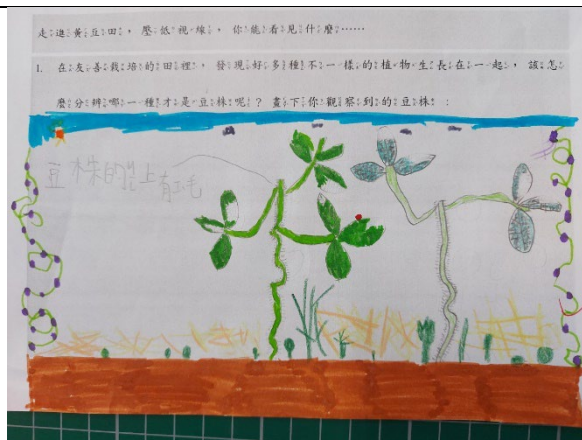 走進黃豆田，壓低視線，你能看見什麼……
1. 在友善栽培的田裡，發現好多種不一樣的植物生長在一起，該怎
麼分辨哪一種才是豆株呢？畫下你觀察到的豆株：
豆株的
上有
毛